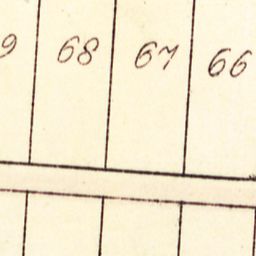 9 68 67 66